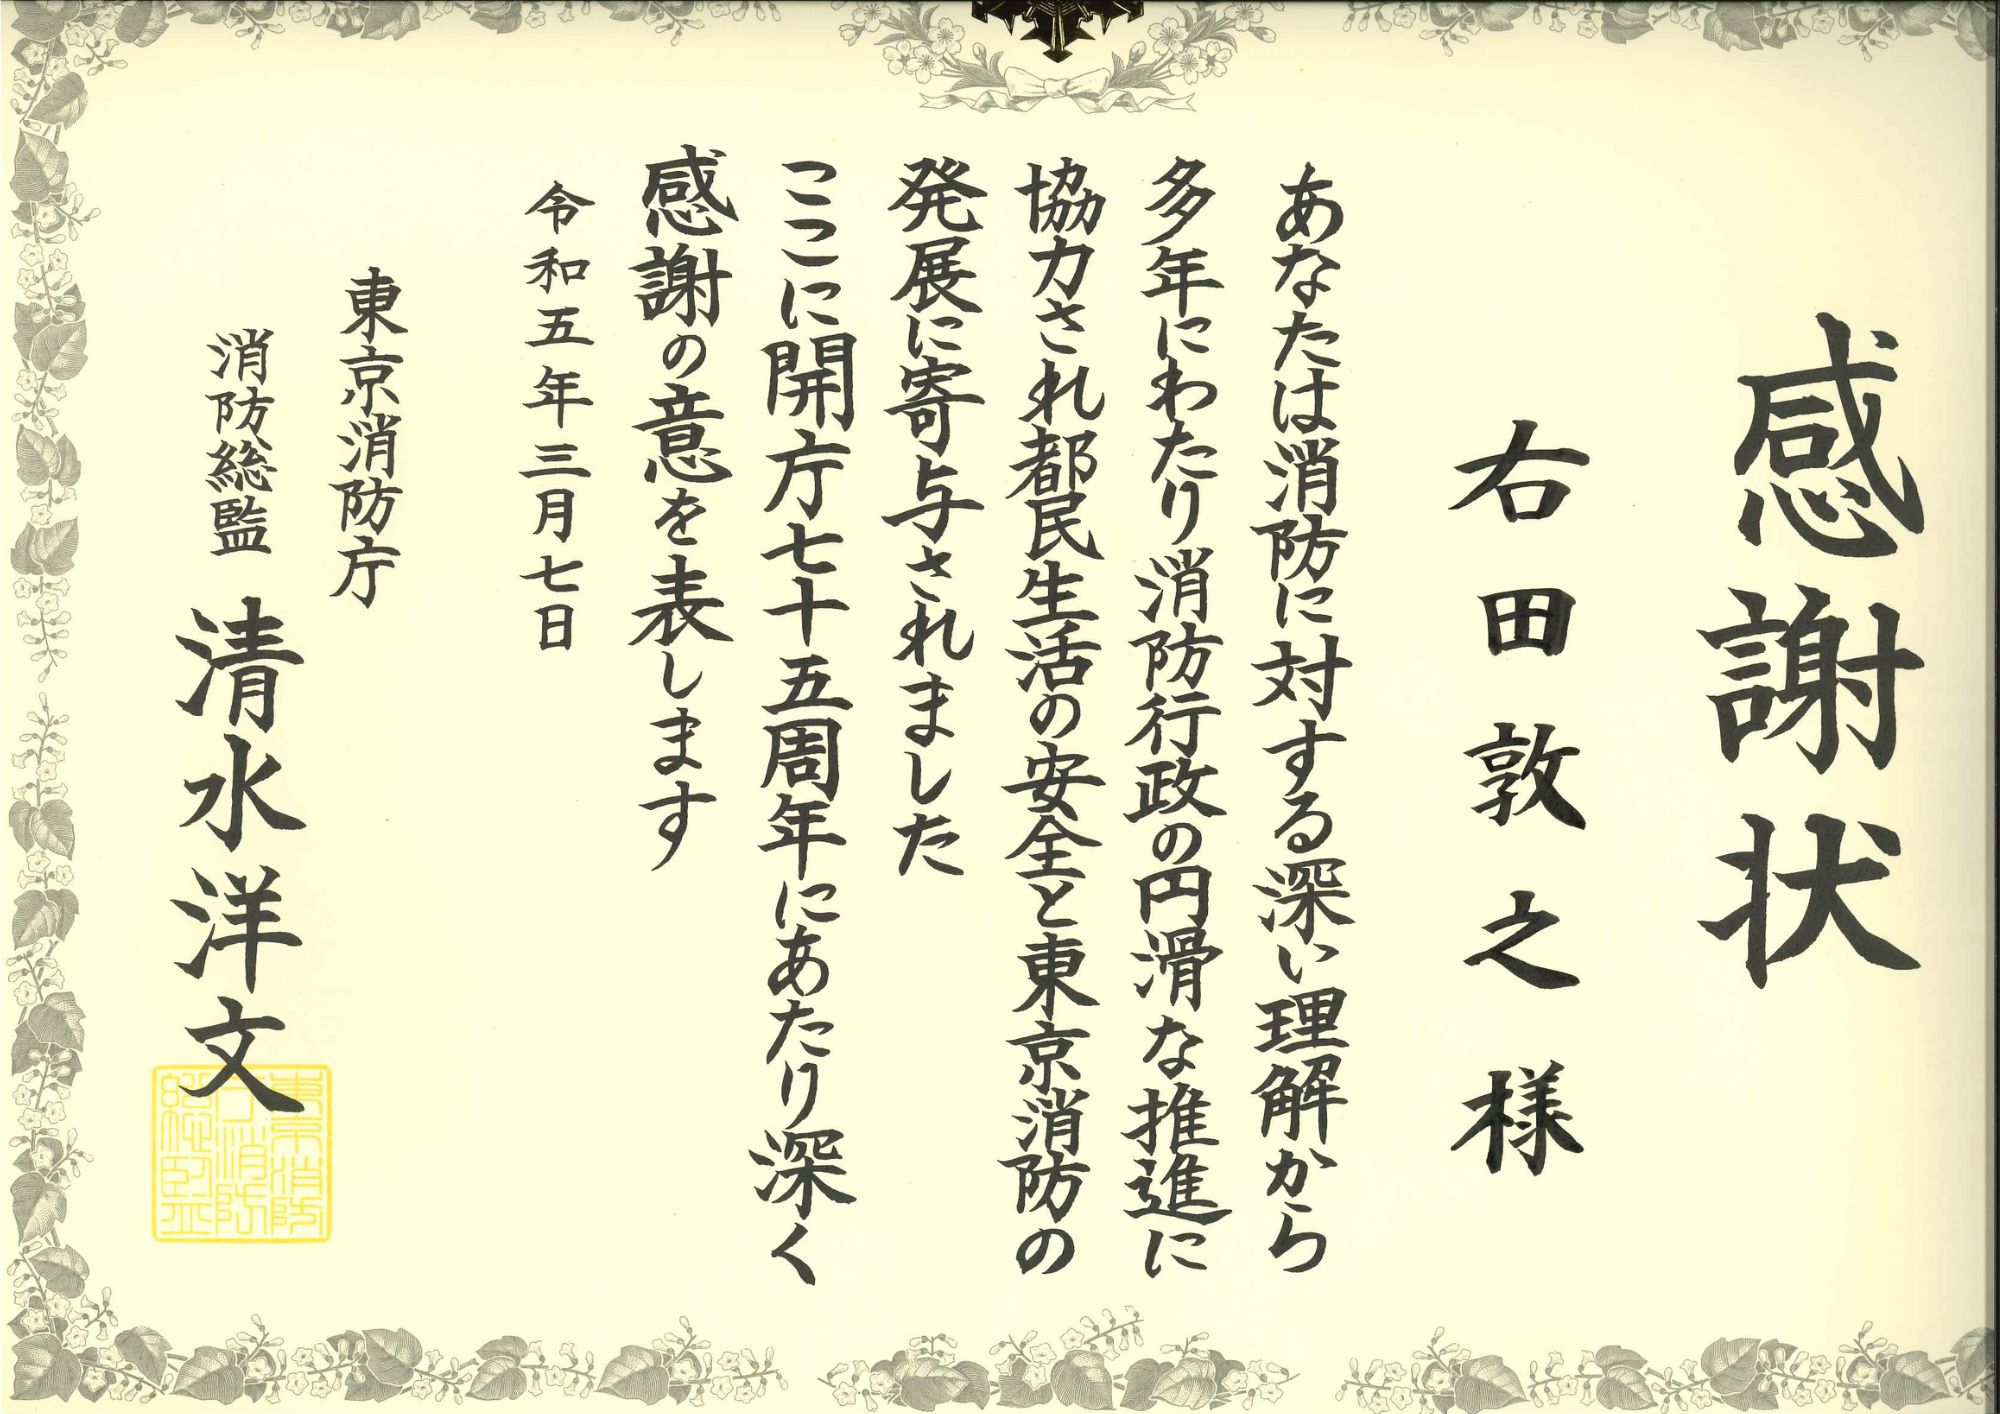 感謝状
右田敦之様
あなたは消防に対する深い理解から
多年にわたり消防行政の円滑な推進に
協力され都民生活の安全と東京消防の
発展に寄与されました
ここに開庁七十五周年にあたり深く
感謝の意を表します
令和五年三月七日
東京消防庁
消防総監 清水洋文
東京消防庁消防総監